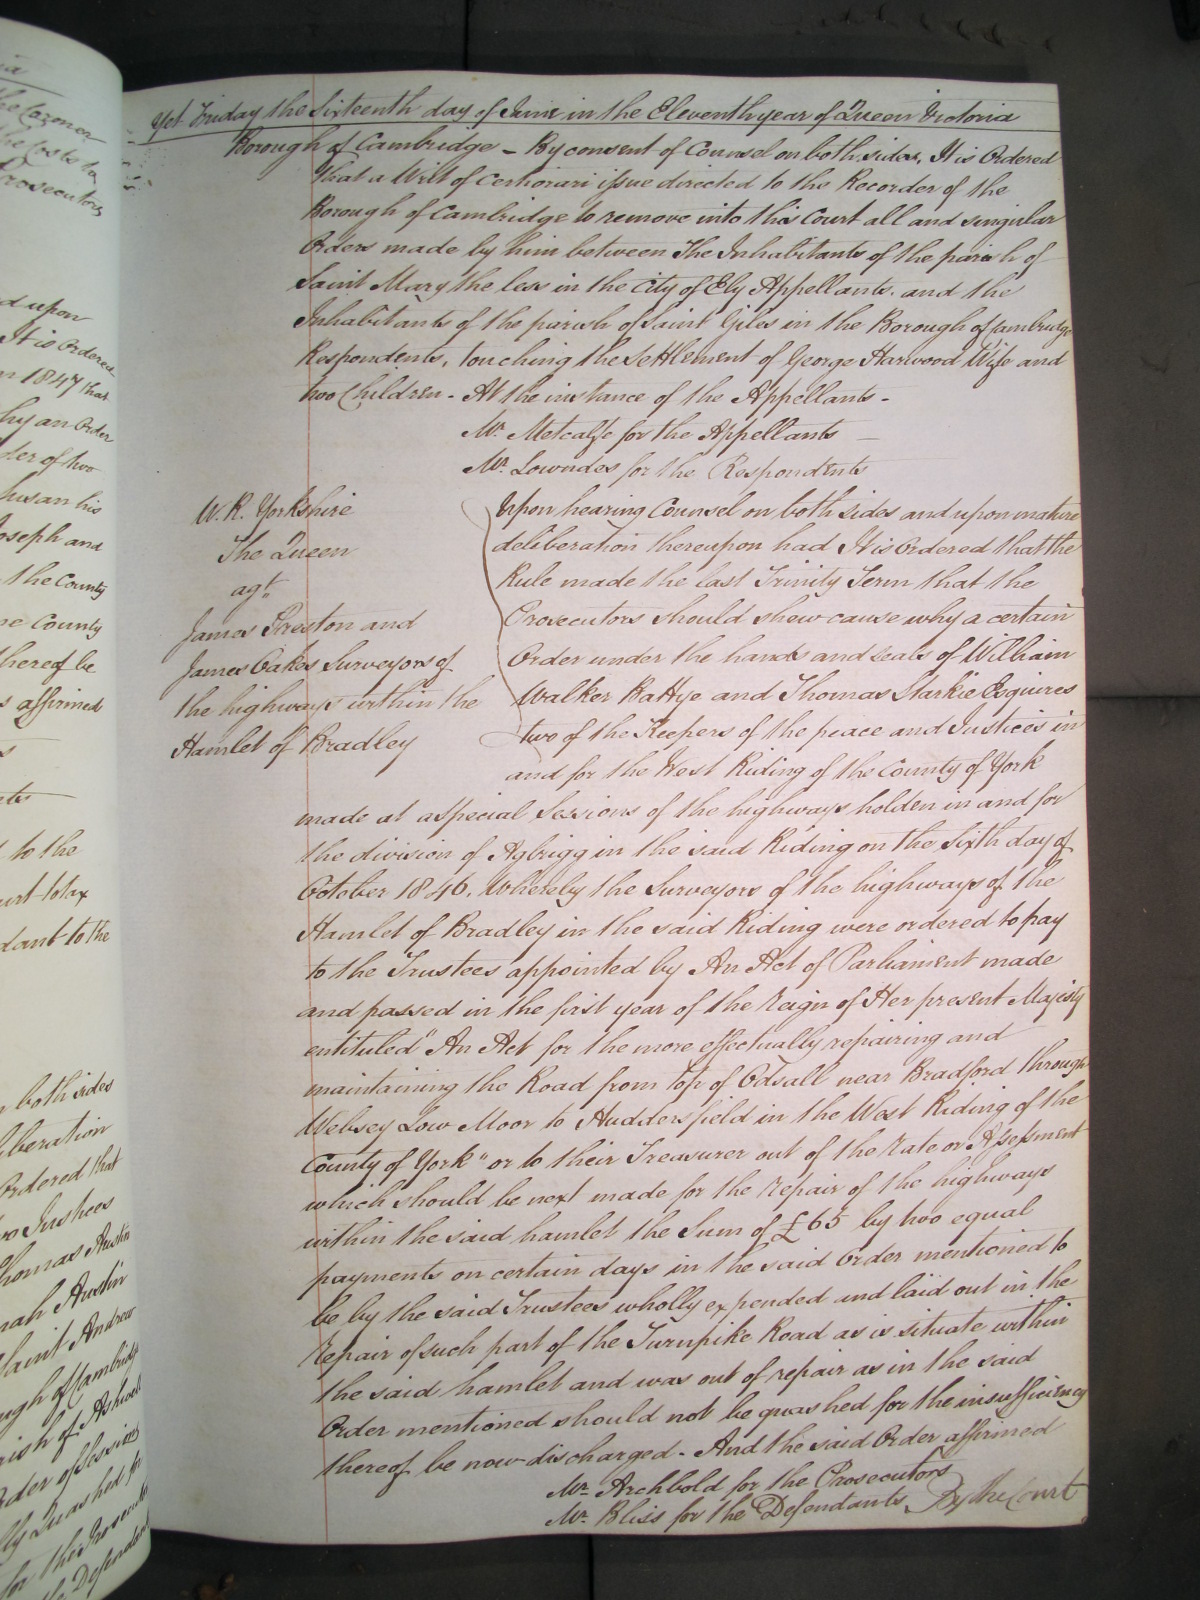 Yet Friday the Sixteenth day of June in the Eleventh year of Queen Victoria
Borough of Cambridge - By consent of Counsel on both sides, It is Ordered
that a Writ of Certiorari issue directed to the Recorder of the
Borough of Cambridge to remove into this Court all and singular
Orders made by him between The Inhabitants of the parish of
Saint Mary the less in the City of Ely Appellants. and the
Inhabitants of the parish of Saint Giles in the Borough of Cambridge
Respondents, touching the Settlement of George Harwood Wife and
two Children - At the instance of the Appellants -
Mr. Metcalfe for the Appellants
Mr. Lowndes for the Respondents
W. R. Yorkshire
The Queen
agt.
James Preston and
James Oakes Surveyors of
the highways within the
Hamlet of Bradley
Upon hearing Counsel on both sides and upon mature
deliberation thereupon had It is Ordered that the
Rule made the last Trinity Term that the
Prosecutors should shew cause why a certain
Order under the hands and seals of William
Walker Battye and Thomas Starkie Esquires
two of the Keepers of the peace and Justices in
and for the West Riding of the County of York
made at a Special Sessions of the highways holden in and for
the division of Agbrigg in the said Riding on the Sixth day of
October 1846. Whereby the Surveyors of the highways of the
Hamlet of Bradley in the said Riding were ordered to pay
to the Trustees appointed by An Act of Parliament made
and passed in the first year of the reign of Her present Majesty
entituled "An Act for the more effectually repairing and
maintaining the Road from top of Odsall near Bradford through
Wibsey Low Moor to Huddersfield in the West Riding of the
County of York" or to their Treasurer out of the rate or Assessment
which should be next made for the repair of the highways
within the said hamlet the Sum of £65 by two equal
payments on certain days in the said Order mentioned to
be by the said Trustees wholly expended and laid out in the
repair of such part of the Turnpike Road as is situate within
the said hamlet and was out of repair as in the said
Order mentioned should not be quashed for the insufficiency
thereof be now discharged - And the said Order affirmed
Mr. Archbold for the Prosecutors
Mr. Bliss for the Defendants By the Court